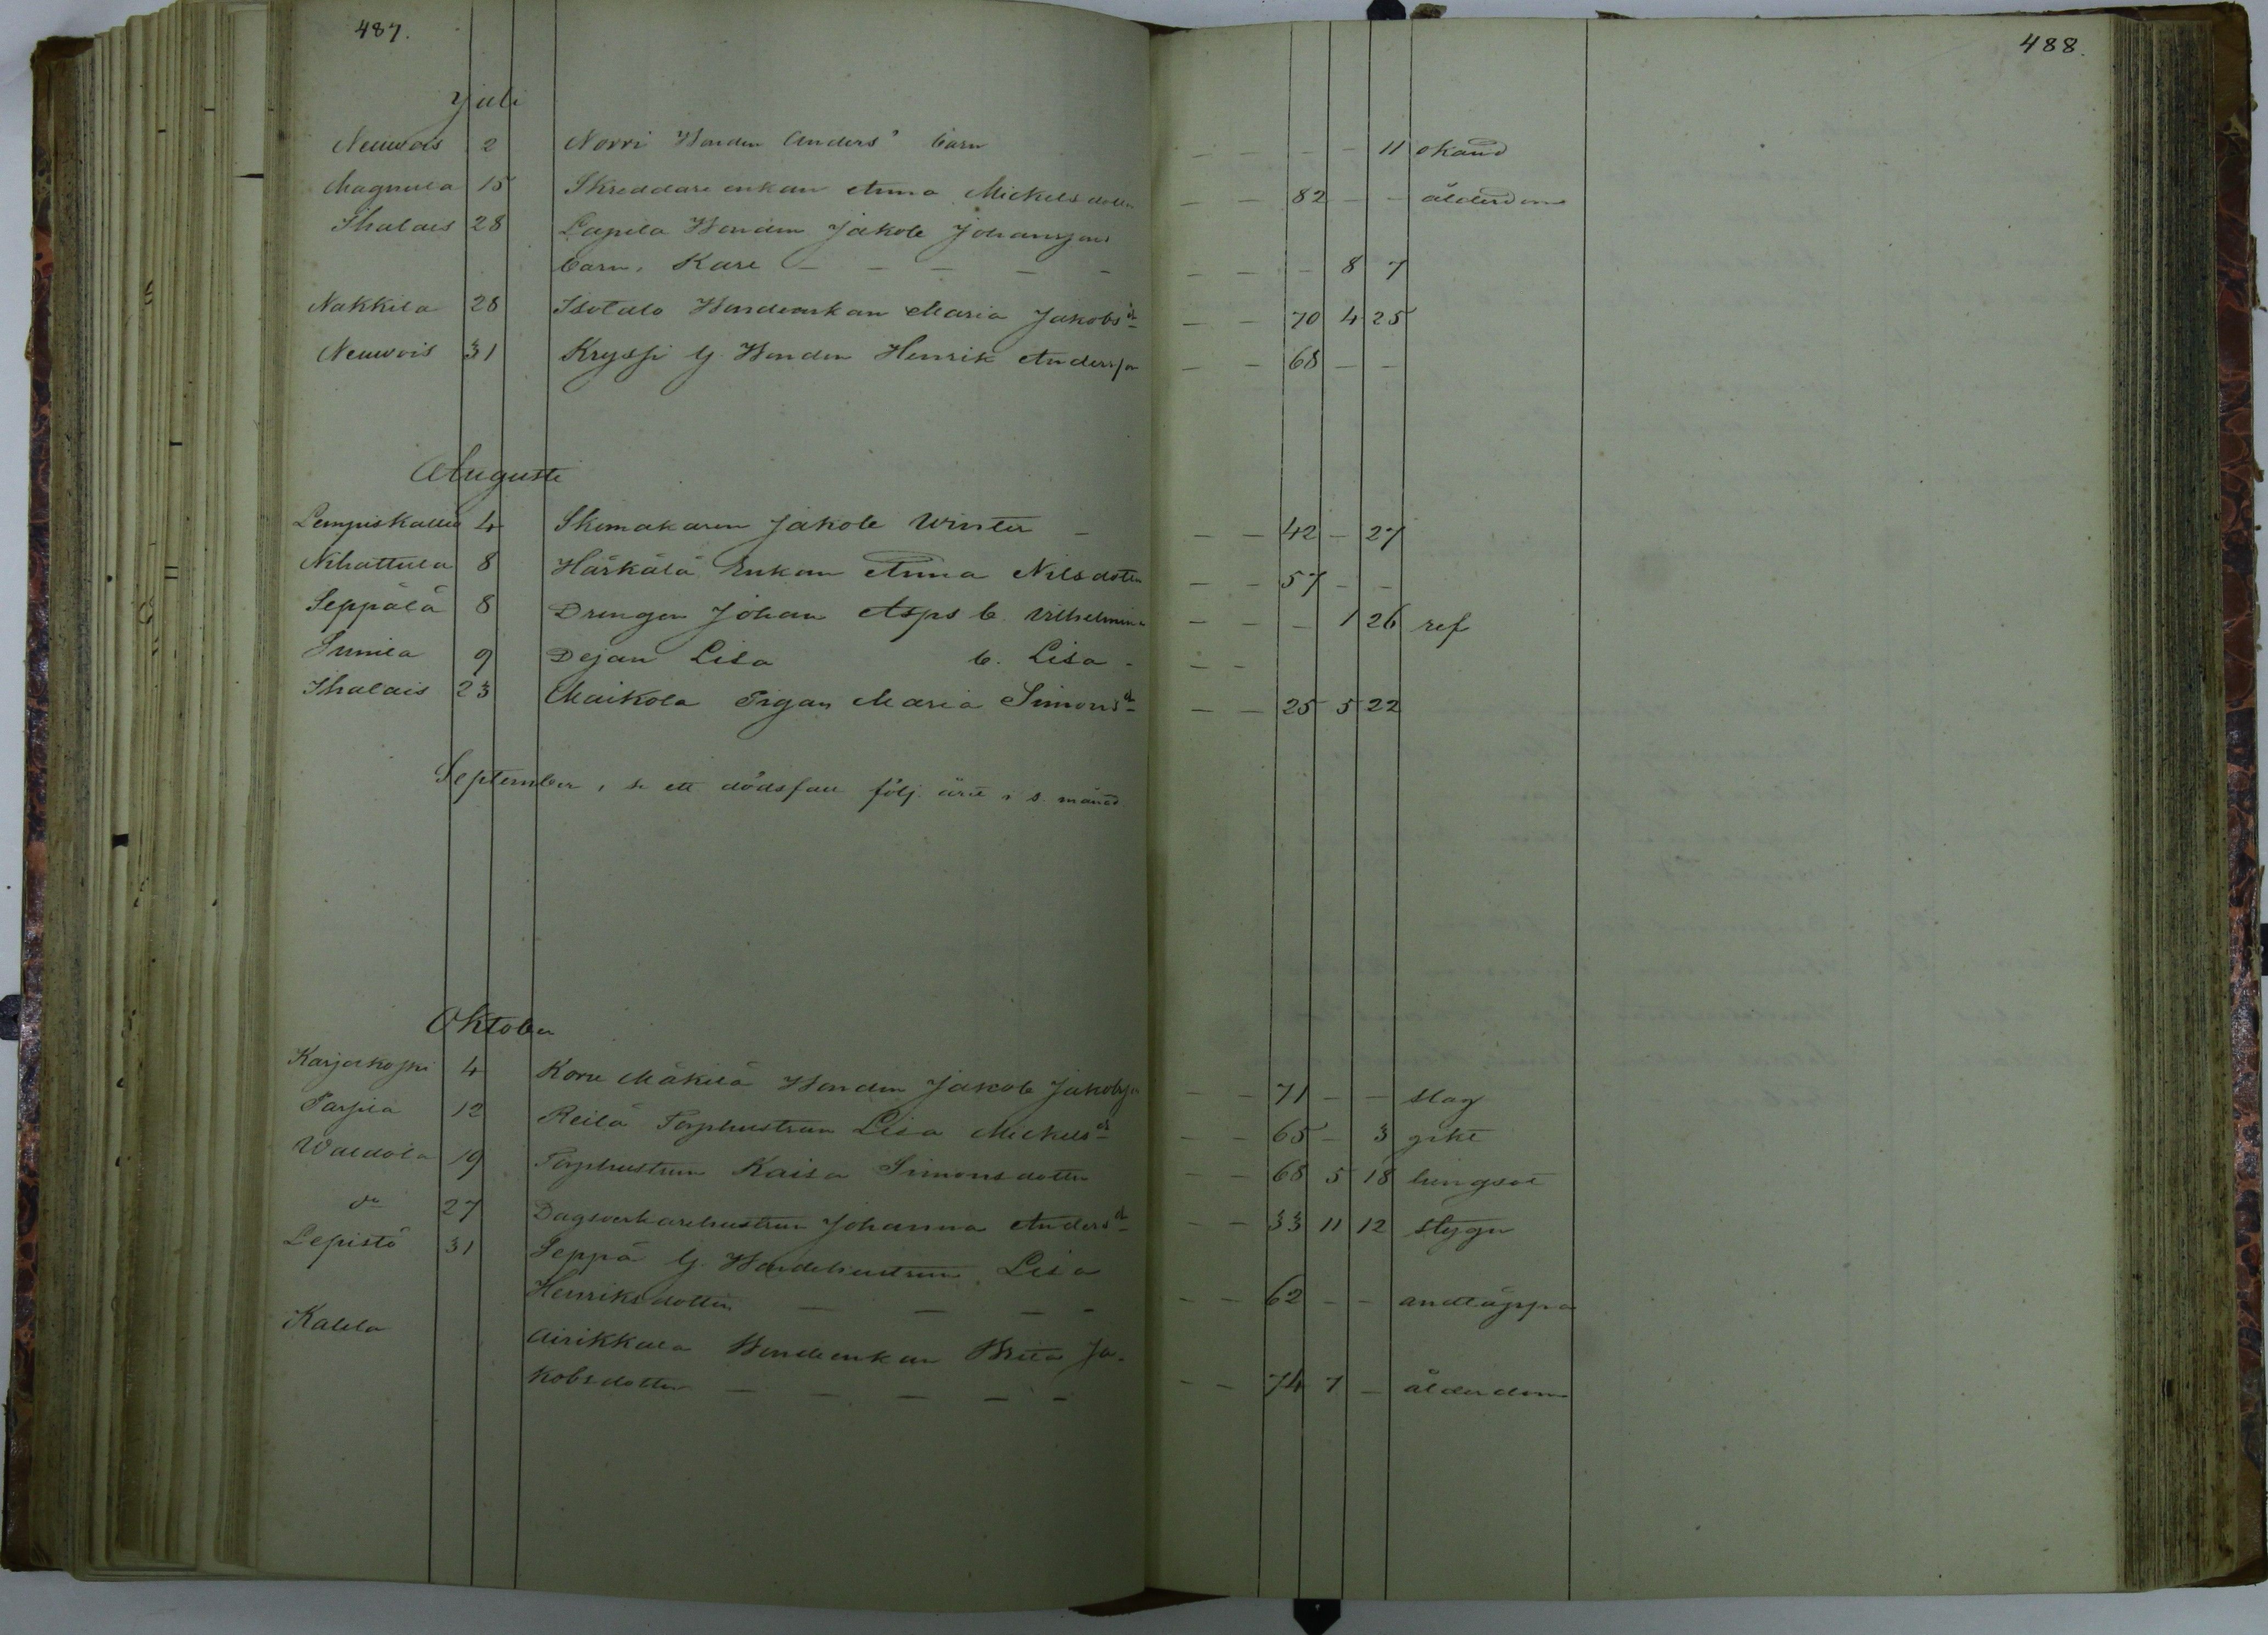 487.
488.
Juli
Neuvois 2 Norri Bonden Anders' barn - - - - 11 okänd
Magnula 15 Skreddare enkan Anna Mickelsdotter - - 82 - - ålderdom
Ihalais 28 Lapila Bonden Jakob Johansson
barn, Kare - - - - - - - - 8 7
Nakkila 28 Isotalo Bondeenkan Maria Jakobsdr - - 70 4 25
Neuvois 31 Kryssi G. Bonden Henrik Andersson - - 68 - -
Augusti
Lempiskallio 4 Skomakaren Jakob Winter - - - 42 - 27
Nihattula 8 Härkälä Enkan Anna Nilsdotter - - 57 - -
Seppälä 8 Drengen Johan Asps b. Vilhelmina - - - 1 26 ref
9 Dejan Lisa b. Lisa - - -
Ihalais 23 Maikola Pigan Maria Simonsdr - - 25 5 22
September, se ett dödsfall följ. året i s. månad
Oktober
Karjakoski 4 Koru Mäkilä Bonden Jakob Jakobsson - - 71 - - slag
Tarpila 12 Reilä Torphustrun Lisa Mickelsdr - - 65 - 3 gikt
19 Torphustrun Kaisa Simonsdotter - - 68 5 18 lungsot
do 27 Dagsverkarehustrun Johanna Andersdr - - 33 11 12 stygn
Lepistö 31 Seppä G. Bondehustrun Lisa
Henriksdotter - - - - - - 62 - - andtäppa
Kalela Airikkala Bondeenkan Brita Ja-
kobsdotter - - - - - - - 74 7 - ålderdom